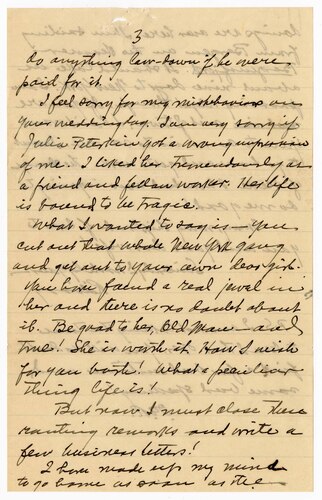 3
do anything low-down if he were
paid for it.
I feel sorry for my misbehavior on
your wedding day. I am very sorry if
Julia Peterkin got a wrong impression
of me. I liked her tremendously as
a friend and fellow worker. Her life
is bound to be tragic.
What I wanted to say is — you
cut out that whole New York gang
and get out to your own dear girl.
You have found a real jewel in
her and there is no doubt about
it. Be good to her, Old Man — and
true! She is worth it. How I wish
for you both! What a peculiar
thing life is!
But now I must close these
ranting remarks and write a
few business letters!
I have made up my mind
to go home as soon as the